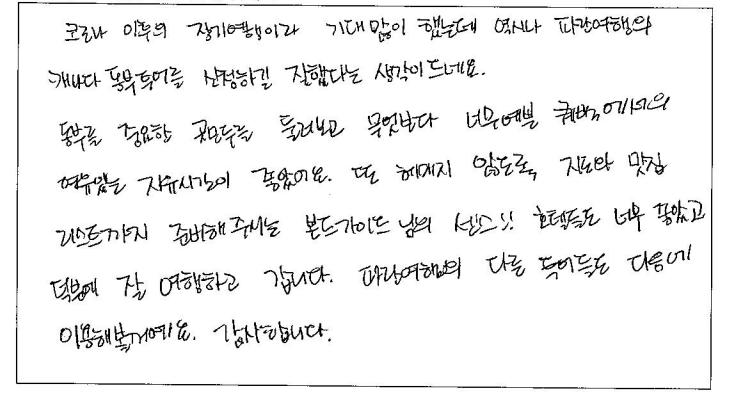 코로나 이후의 장기여행이라 기대 많이 했는데 역시나 파란여행의
캐나다 동부투어를 선정하길 잘했다는 생각이 드네요.
동부를 중요한 곳만두를 둘러보고 무엇보다 너무예쁜 퀘벡에서의
여유있는 자유시간이 좋았어요. 또 헤매지 않도록, 지도와 맛집
리스트까지 준비해 주시는 본드가이드 님의 센스!! 호텔들도 너무 좋았고
덕분에 잘 여행하고 갑니다. 파란여행의 다른 투어들도 다음에
이용해볼거예요. 감사합니다.